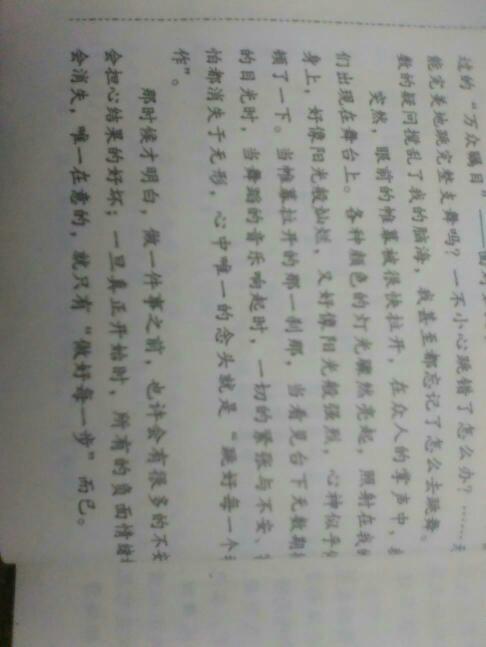 过的“万众瞩目”——面对
能完美地跳完整支舞吗？一不小心跳错了怎么办？……无
数的疑问搅乱了我的脑海，我甚至都忘记了怎么去跳舞。
突然，眼前的帷幕被很快拉开，在众人的掌声中，我
们出现在舞台上。各种颜色的灯光骤然亮起，照射在我的
身上，好像阳光般灿烂，又好像阳光般强烈，心神似乎
顿了一下。当帷幕拉开的那一刹那，当看见台下无数期
的目光时，当舞蹈的音乐响起时，一切的紧张与不安、
怕都消失于无形，心中唯一的念头就是“跳好每一个
作”。
那时候才明白，做一件事之前，也许会有很多的不安
会担心结果的好坏；一旦真正开始时，所有的负面情绪
会消失，唯一在意的，就只有“做好每一步”而已。